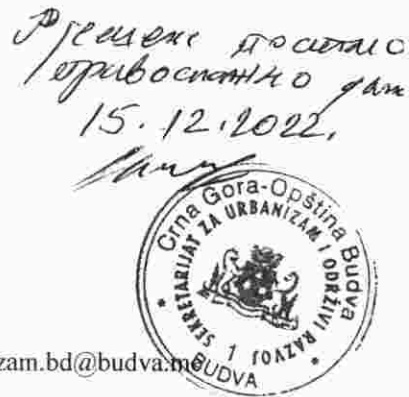 Рјешење постало
правоснажно дана
15.12.2022.
Crna Gora-Opština Budva
SEKRETARIJAT ZA URBANIZAM I ODRŽIVI RAZVOJ
1
BUDVA
zam.bd@budva.me